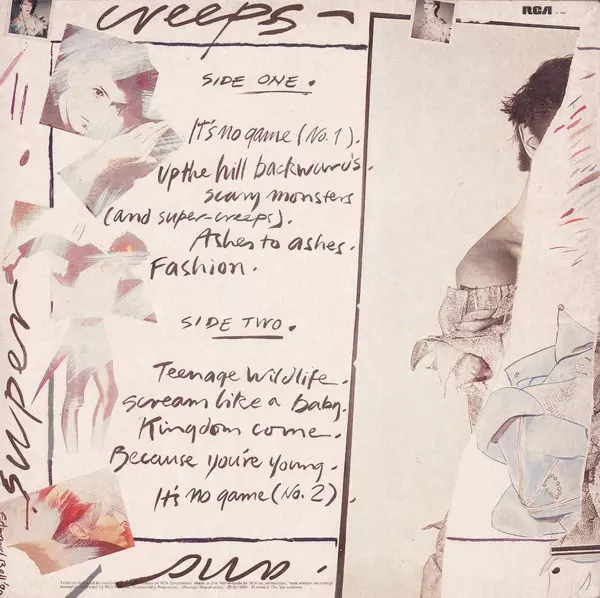 creeps
RCA
SIDE ONE.
It's no game (No. 1).
Up the hill backwards.
scary monsters
(and super-creeps).
Ashes to ashes.
Fashion.
SIDE TWO.
Teenage Wildlife.
scream like a baby.
Kingdom come.
Because you're young.
It's no game (No. 2).
super
and